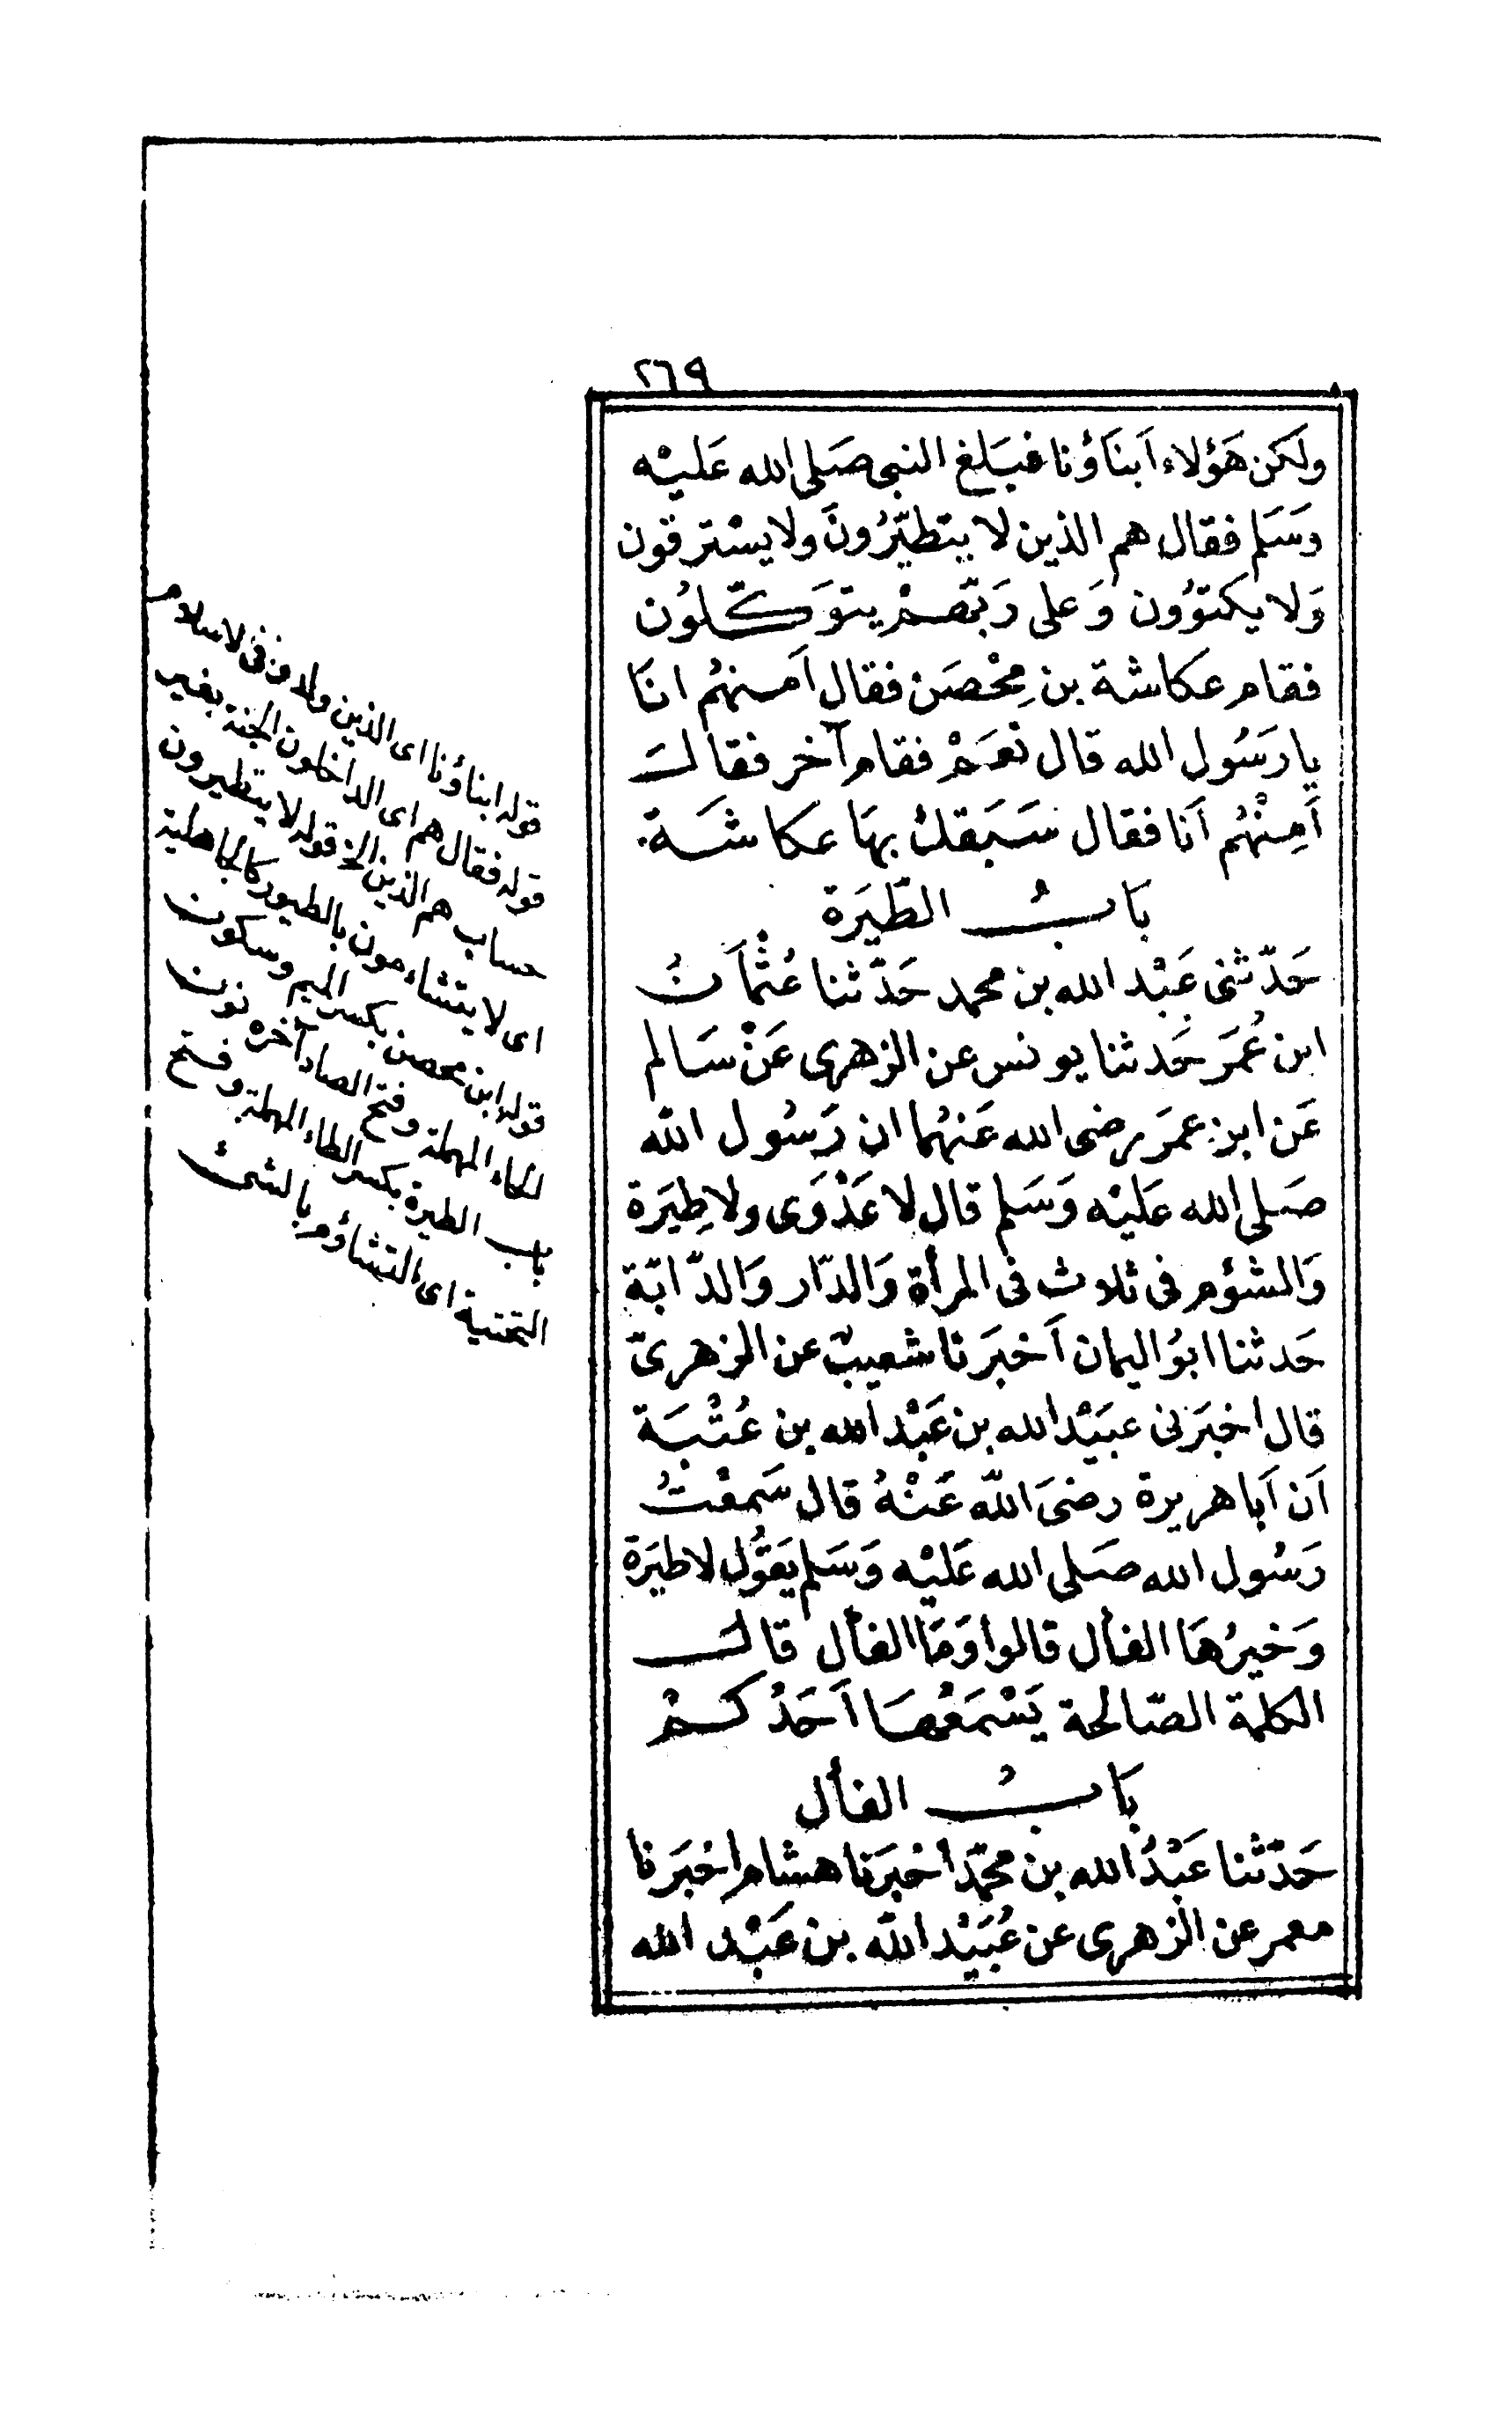 ٢٦٩
ولكن هَؤلاء اَبنَاؤنا فبَلغ النبى صَلى الله عَليْه
وَسَلم فقال هم الذين لا يتطيّرُونَ ولا يسْترقون
وَلا يكتوُون وَعلى رَبّهمْ يتوَكّلوُن
فقام عكاشة بن مِحْصَن فقال اَمنهُم انَا
يا رَسُول الله قال نعَمْ فقام آخر فقالَ
اَمِنْهُم اَنا فقال سَبَقك بهَا عكاشَة.
بَابُ الطّيَرَة
حَدّثنى عَبْد الله بن محمد حَدّثنا عُثْمَانُ
ابن عُمَر حَدثنا يونس عن الزهرى عَنْ سَالم
عَن ابن عمَر رضى الله عَنهُما ان رَسُول الله
صَلى الله عَليْه وَسَلم قال لا عَدْوَى ولا طِيَرة
وَالشؤم فى ثلاث فى المرأة وَالدّار وَالدّابّة
حَدثنا ابوُ اليمان اَخبَرنا شعيبٌ عن الزهرىّ
قال اخبَرنى عبَيْد الله بن عَبْد الله بن عُتْبَة
اَن اَبا هريرة رضىَ اللّه عَنْهُ قال سَمعْتُ
رَسُول الله صَلى الله عَليْه وَسَلم يَقوُل لا طيَرة
وَخيرُهَا الفأل قالوا وَمَا الفأل قالَ
الكلمة الصّالحة يَسْمَعُهَا اَحَدُكمْ
بَابُ الفأل
حَدّثنا عَبْدُ الله بن محمّد اخبَرنا هشام اخبَرنا
معمر عن الزهرى عن عُبَيْد اللّه بن عَبْد الله
قوله ابناؤنا اى الذين ولدوا فى الاسلام
قوله فقال هم اى الداخلون الجنة بغير
حساب هم الذين الخ قوله لا يتطيرون
اى لا يتشاءمون بالطيور كالجاهلية
قوله ابن محصن بكسر الميم وسكون
الحاء المهملة وفتح الصاد آخره نون
باب الطيرة بكسر الطاء المهملة وفتح
التحتية اى التشاؤم بالشئ